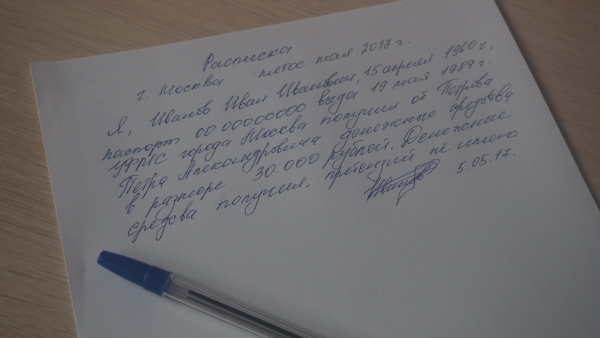 Расписка
г. Москва пятое мая 2017 г.
Я, Иванов Иван Иванович, 15 апреля 1960 г,
паспорт 00 00000000 выдан 19 мая 1989 г.
УФМС города Москва получил от Петрова
Петра Александровича денежные средства
в размере 30.000 рублей. Денежные
средства получил, претензий не имею
5.05.17.